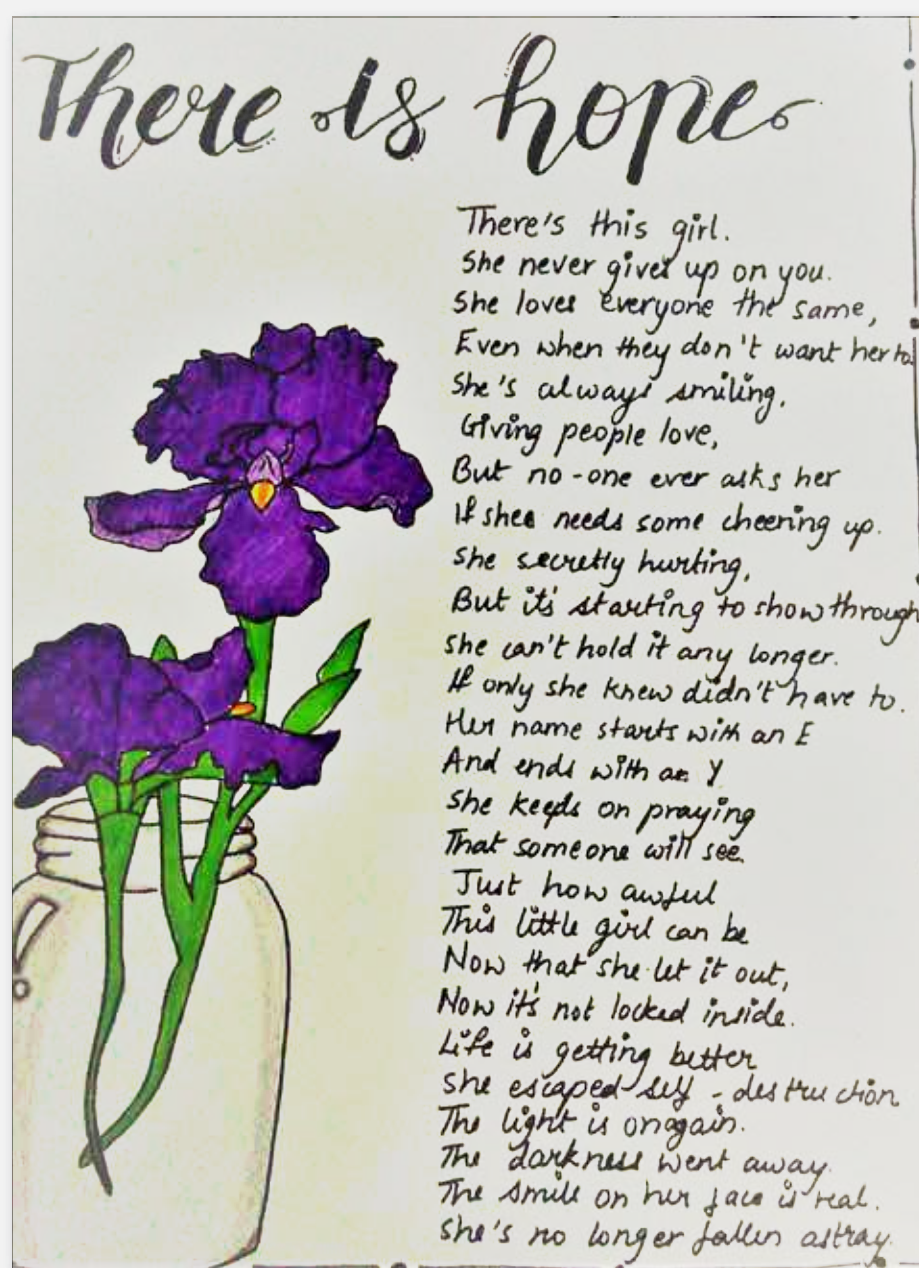 There is hope
There's this girl.
She never gives up on you.
She loves everyone the same,
Even when they don't want her to.
She's always smiling,
Giving people love,
But no-one ever asks her
If shee needs some cheering up.
She secretly hurting,
But it's starting to show through
She can't hold it any longer.
If only she knew didn't have to.
Her name starts with an E
And ends with an Y
She keeps on praying
That someone will see.
Just how awful
This little girl can be
Now that she let it out,
Now it's not locked inside.
Life is getting better
She escaped self-destruction
The light is onagain.
The darkness went away.
The smile on her face is real.
She's no longer fallen astray.